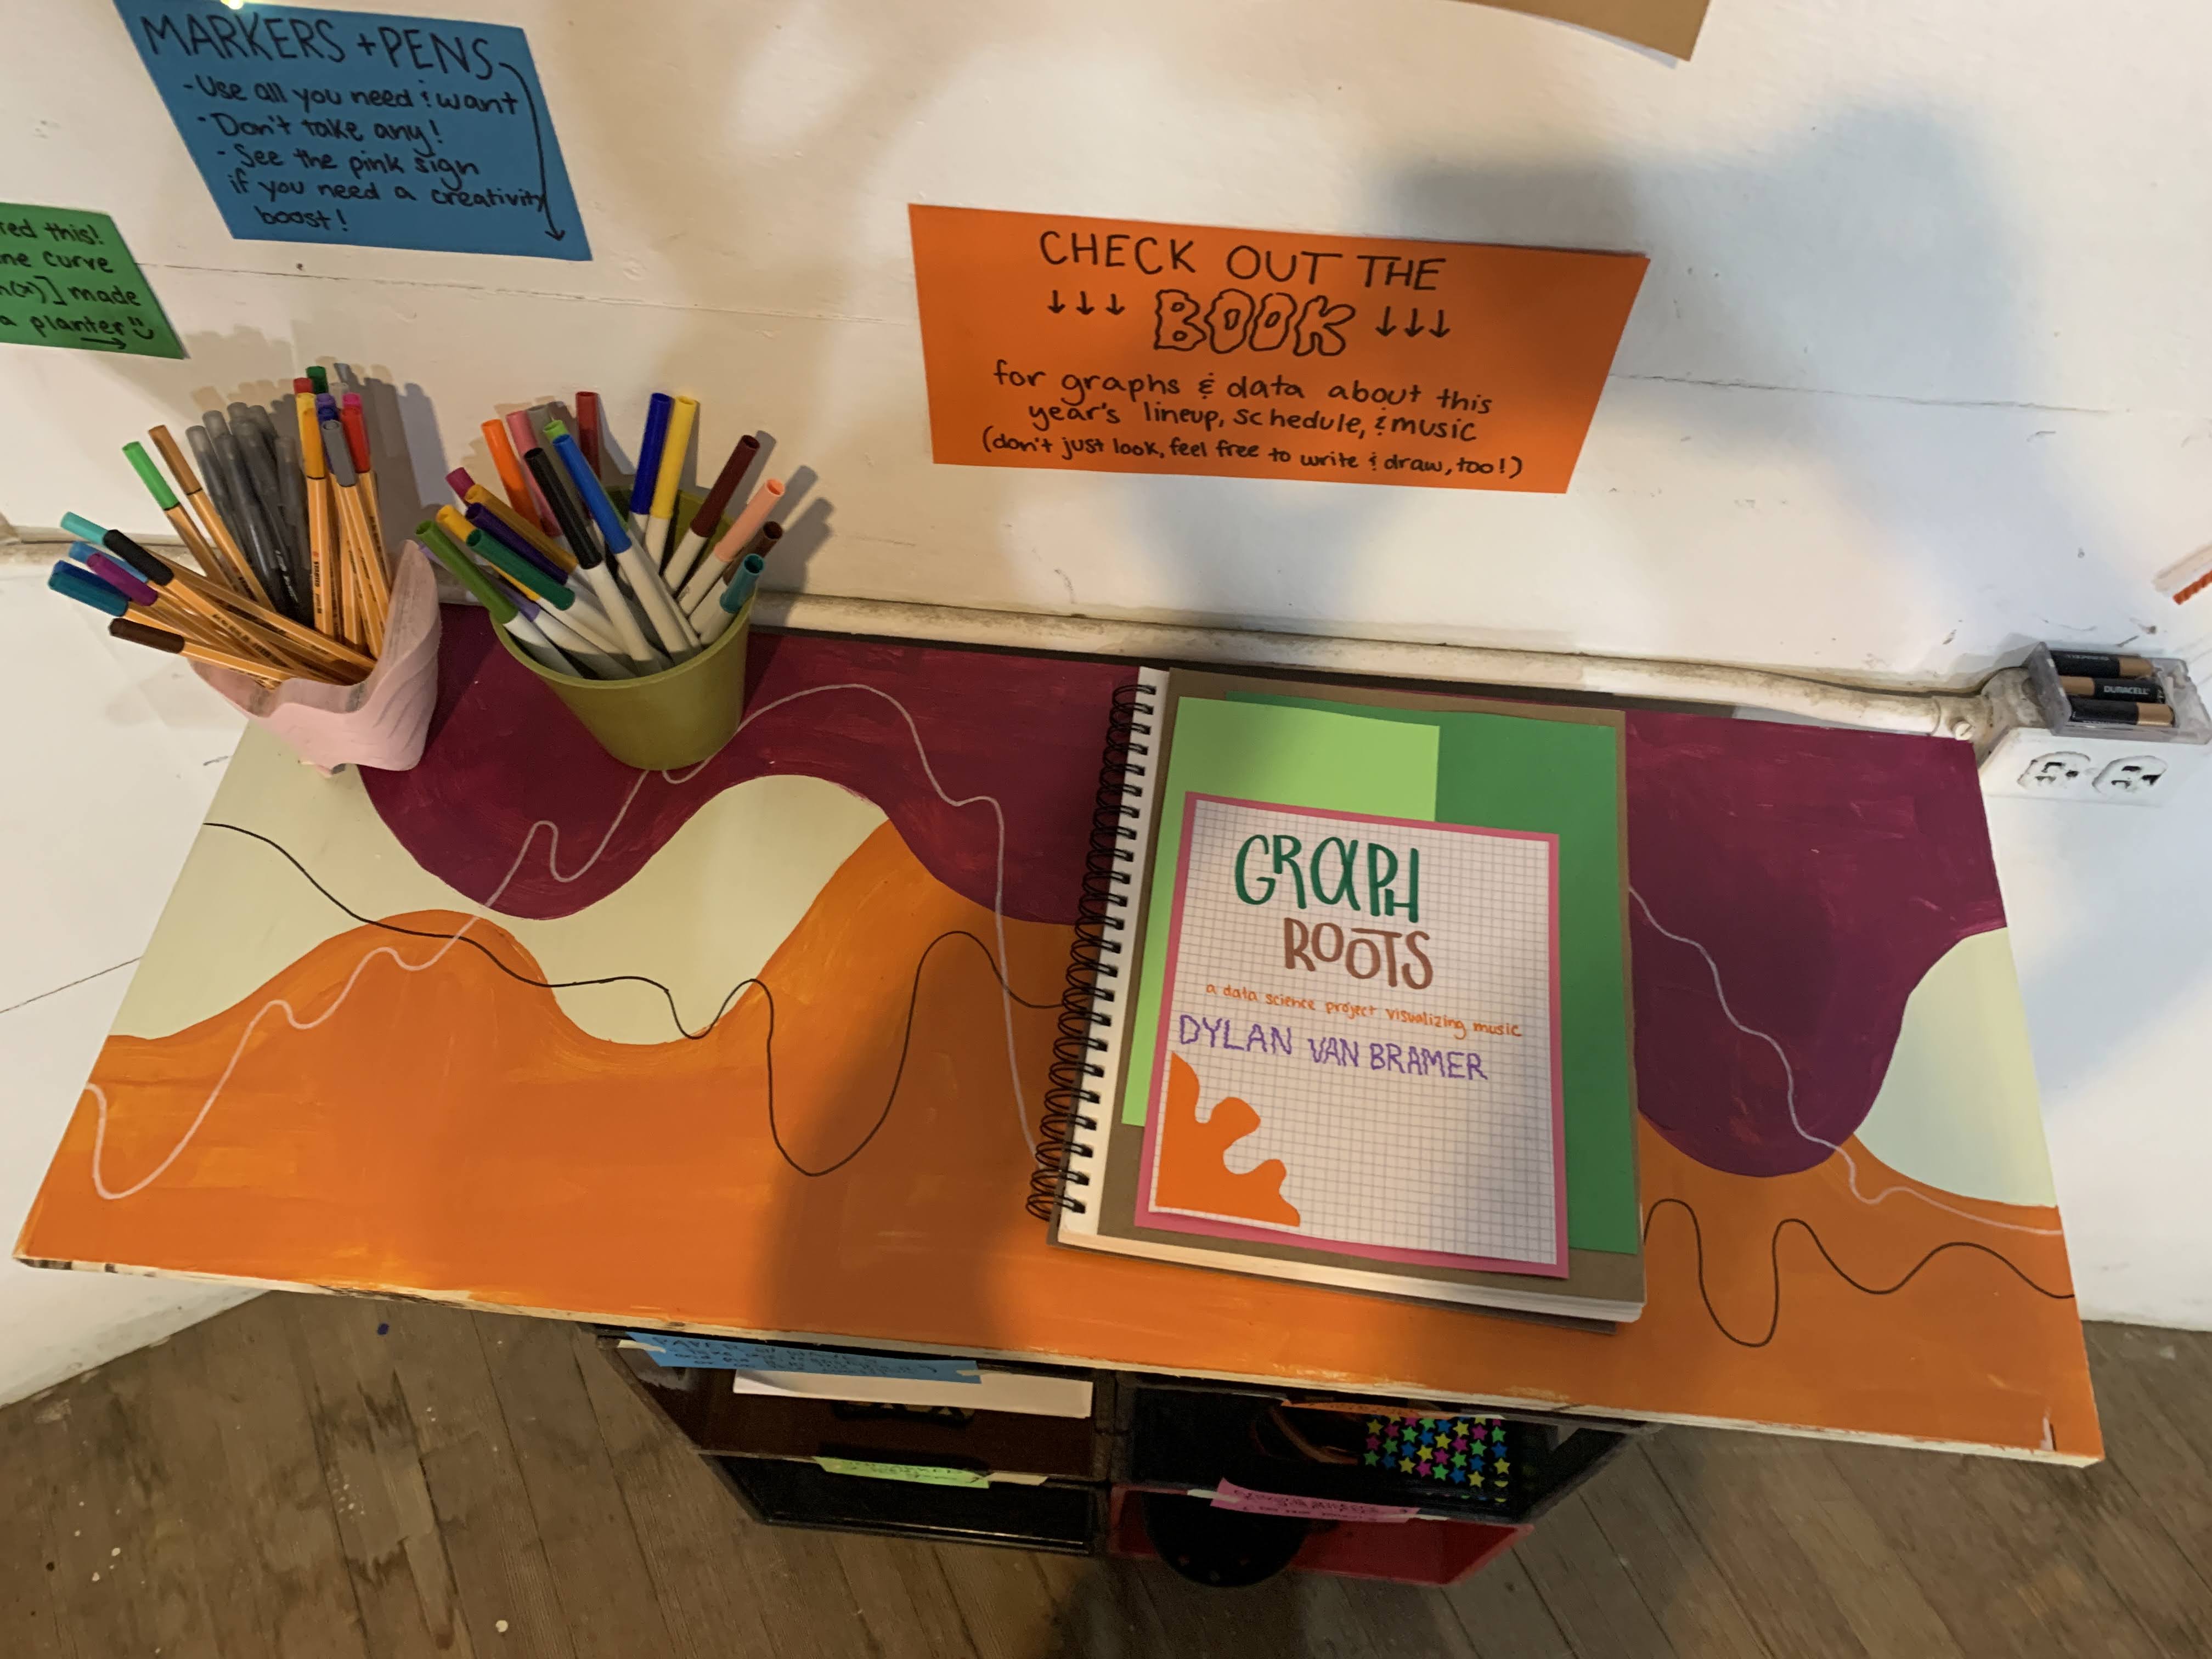 red this!
ne curve
n(x)] made
a planter
MARKERS + PENS
- Use all you need & want
- Don't take any!
- See the pink sign
if you need a creativity
boost!
CHECK OUT THE
↓↓↓ BOOK ↓↓↓
for graphs & data about this
year's lineup, schedule, & music
(don't just look, feel free to write & draw, too!)
GRAPH
ROOTS
a data science project visualizing music
DYLAN VAN BRAMER
DURACELL